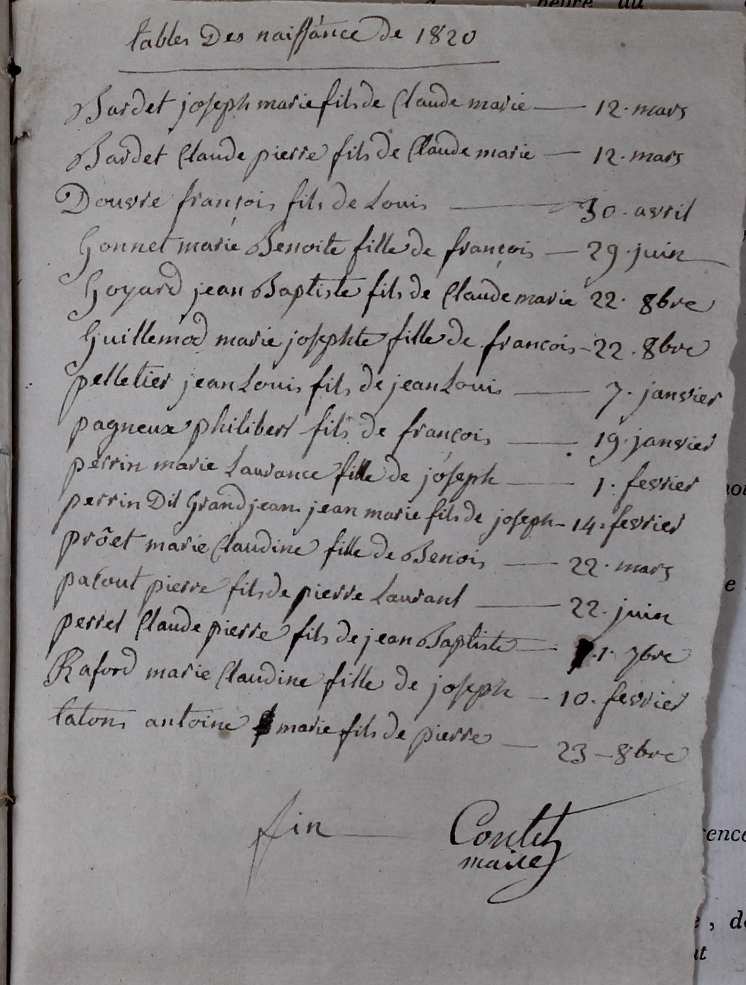 heure du
tables Des naissance de 1820
Bardet joseph marie fils de Claude marie — 12. mars
Bardet Claude pierre fils de Claude marie — 12. mars
Douvre françois fils de Louis — 30. avril
Gonnet marie Benoite fille de françois — 29. juin
Goyard jean Baptiste fils de Claude marie 22. 8bre
Guillemod marie josephte fille de francois - 22. 8bre
pelletier jean Louis fils de jean Louis — 7. janvier
pagneux philibert fils de françois — 19. janvier
perrin marie Laurance fille de joseph — 1. fevrier
perrin Dit Grandjean jean marie fils de joseph - 14. fevrier
prôet marie Claudine fille de Benois — 22. mars
pacout pierre fils de pierre Laurant — 22. juin
perret Claude pierre fils de jean Baptiste — 1. 7bre
Raford marie Claudine fille de joseph — 10. fevrier
tatons antoine marie fils de pierre — 23 - 8bre
fin —
maire
ence
, de